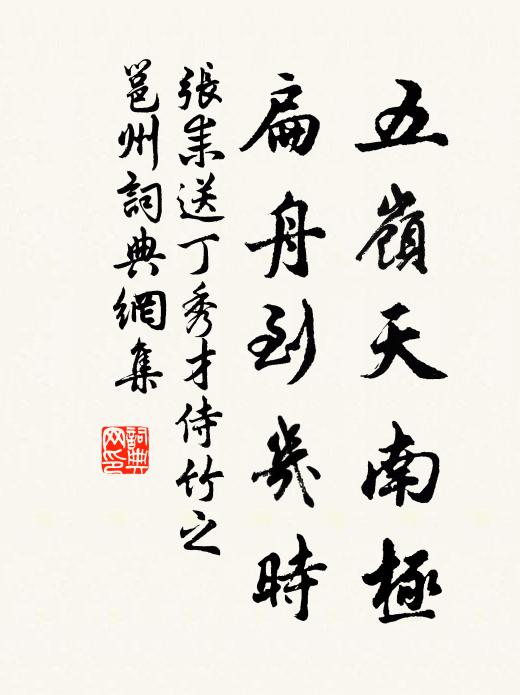 五嶺天南極
扁舟到幾時
張耒送丁秀才侍竹之
邕州詞典網集
詞典网印